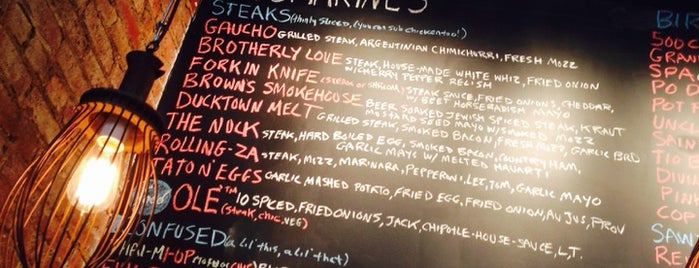 STEAKS (thinly sliced, (you can sub chicken too!)
GAUCHO GRILLED STEAK, ARGENTINIAN CHIMICHURRI, FRESH MOZZ
BROTHERLY LOVE STEAK, HOUSE-MADE WHITE WHIZ, FRIED ONION
W/CHERRY PEPPER RELISH
FORK IN KNIFE (STEAK OR SHROOM) STEAK SAUCE, FRIED ONIONS, CHEDDAR,
W/ BEET HORSERADISH MAYO
BROWN'S SMOKEHOUSE BEER SOAKED JEWISH SPICED STEAK, KRAUT
MUSTARD SEED MAYO W/SMOKED MOZZ
DUCKTOWN MELT GRILLED STEAK, SMOKED BACON, FRESH MOZZ, GARLIC BRD
THE NUCK STEAK, HARD BOILED EGG, SMOKED BACON, COUNTRY HAM,
GARLIC MAYO W/ MELTED HAVARTI
ROLLING-ZA STEAK, MOZZ, MARINARA, PEPPERONI, LET, TOM, GARLIC MAYO
TATO N' EGGS GARLIC MASHED POTATO, FRIED EGG, FRIED ONION, AU JUS, PROV
OLE™ 10 SPICED, FRIED ONIONS, JACK, CHIPOTLE-HOUSE-SAUCE, L,T.
(steak, chic, veg)
ONFUSED (a lil' this, a lil' that)
MI-UP
500 C
GRAN
SPA
PO D
PO
UNC
SAIN
TIO
DIV
PIN
COR
SAW
RE